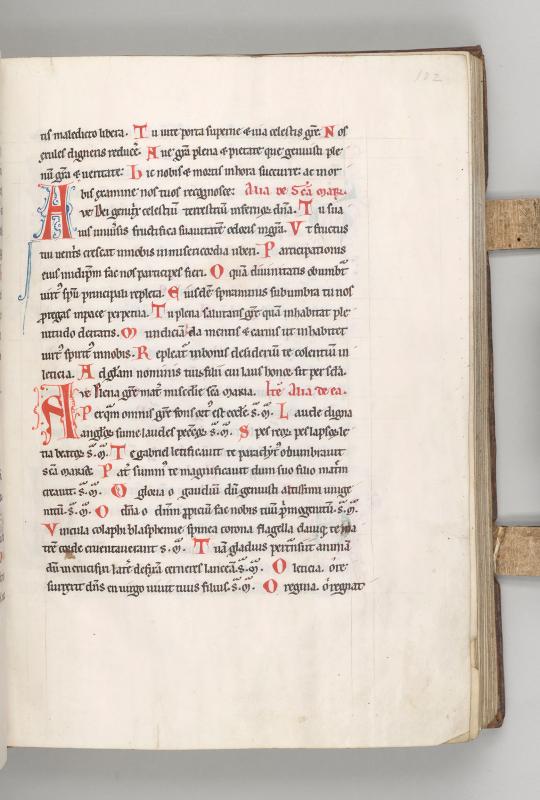 102
tis maledicto libera. Tu vite porta superne & via celestis gr̄e. Nos
exules digneris reducē. Ave gr̄a plena & pietate que genuisti ple
nū gr̄a & veritate. hic nobis & mortis in hora succurre. ac in or
bis examine nos tuos recognosce. Alia de Sc̄a mar.
Ave dei genit̄x celestiū terrestriū infernoꝝ dn̄a. Tu sua
vis in
fructifica suavitatē odoris in
Ut fructus
tui ventris crescat in nobis in misericordia uberi. Participationis
eius
fac nos participes fieri. O quā divinitatis obumbr̄
virt̄ sp̄u principali repleta. Eiusdē
sub umbra tu nos
ꝓtegas in pace perpetua. Tu plena salutaris gr̄e quā inhabitat ple
nitudo deitatis. Mundiciā da mentis & carnis ut inhabitet
virt̄ spirit̄ in nobis. Repleat̄ in bonis desideriū te colentiū in
leticia. Ad gl̄am nominis tui filii cui laus honor sit per sc̄la.
Ave plena gr̄e mat̄ mis̄cdie sc̄a maria. Itē Alia de ea.
Per quā omnis gr̄e fons
est eccl̄e. s. m̄. Laude digna
angl̄oꝝ sume laudes pecc̄oꝝ s. m̄. Spes reoꝝ pes lapsoꝝ le
ticia beatoꝝ s. m̄. Te gabriel letificavit te paraclyt̄ obumbravit
sc̄a maria. Pat̄ summ̄ te magnificavit dum suo filio matrē
creavit. s. m̄. O gloria o gaudiū dū genuisti altissimi unige
nitū. s. m̄. O dn̄a o
ꝓpiciū fac nobis tuū p̄mogenitū. s. m̄.
Vincula colaphi blasphemie spinea corona flagella clavi
te
trē
cruentaverant s. m̄. Tuā gladius ꝑtransiit animā
dū in crucifixi
cerneres lanceā. s. m̄. O leticia.
surrexit dn̄s en virgo vivit tuus filius. s. m̄. O regina.
regnat